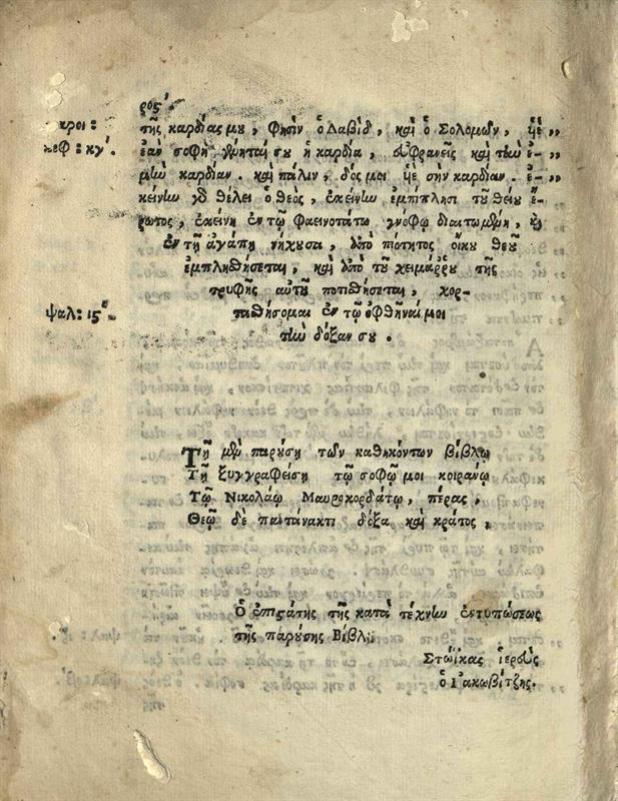 ρος.
τῆς καρδίας μου, Φησὶν ὁ Δαβὶδ, καὶ ὁ Σολομὼν, ὑὲ „
κροι:
ἐὰν σοφὴ γένηταί σου ἡ καρδία, εὐφρανεῖς καὶ τὴν ἐ- „
κεφ: κγ΄.
μὴν καρδίαν. καὶ πάλιν, δός μοι ὑὲ σὴν καρδίαν. ἐ- „
κείνην γὰρ θέλει ὁ θεὸς, ἐκείνην ἐμπίπλησι τοῦ θείου ἔ-
ρωτος, ἐκείνη ἐν τῷ φαεινοτάτῳ γνόφῳ διαιτωμένη, καὶ
ἐν τῇ ἀγάπῃ ἀπὸ πιότητος οἴκου θεοῦ
ἐμπλησθήσεται, καὶ ἀπὸ τοῦ χειμάῤῥου τῆς
τρυφῆς αὐτοῦ ποτισθήσεται, χορ-
ψαλ: 15
τασθήσομαι ἐν τῷ ὀφθῆναί μοι
τὴν δόξαν σου.
Τῇ μὲν παρούσῃ τῶν καθηκόντων βίβλῳ
Τῇ ξυγγραφείσῃ τῷ σοφῷ μοι κοιράνῳ
Τῷ Νικολάῳ Μαυροκορδάτῳ, πέρας,
Θεῷ δὲ παντάνακτι δόξα καὶ κράτος,
Ὁ ἐπιστάτης τῆς κατὰ τέχνην ἐντυπώσεως
τῆς παρούσης Βίβλου
Στωΐκας ἱερεὺς
ὁ Ἰακωβίτζης.